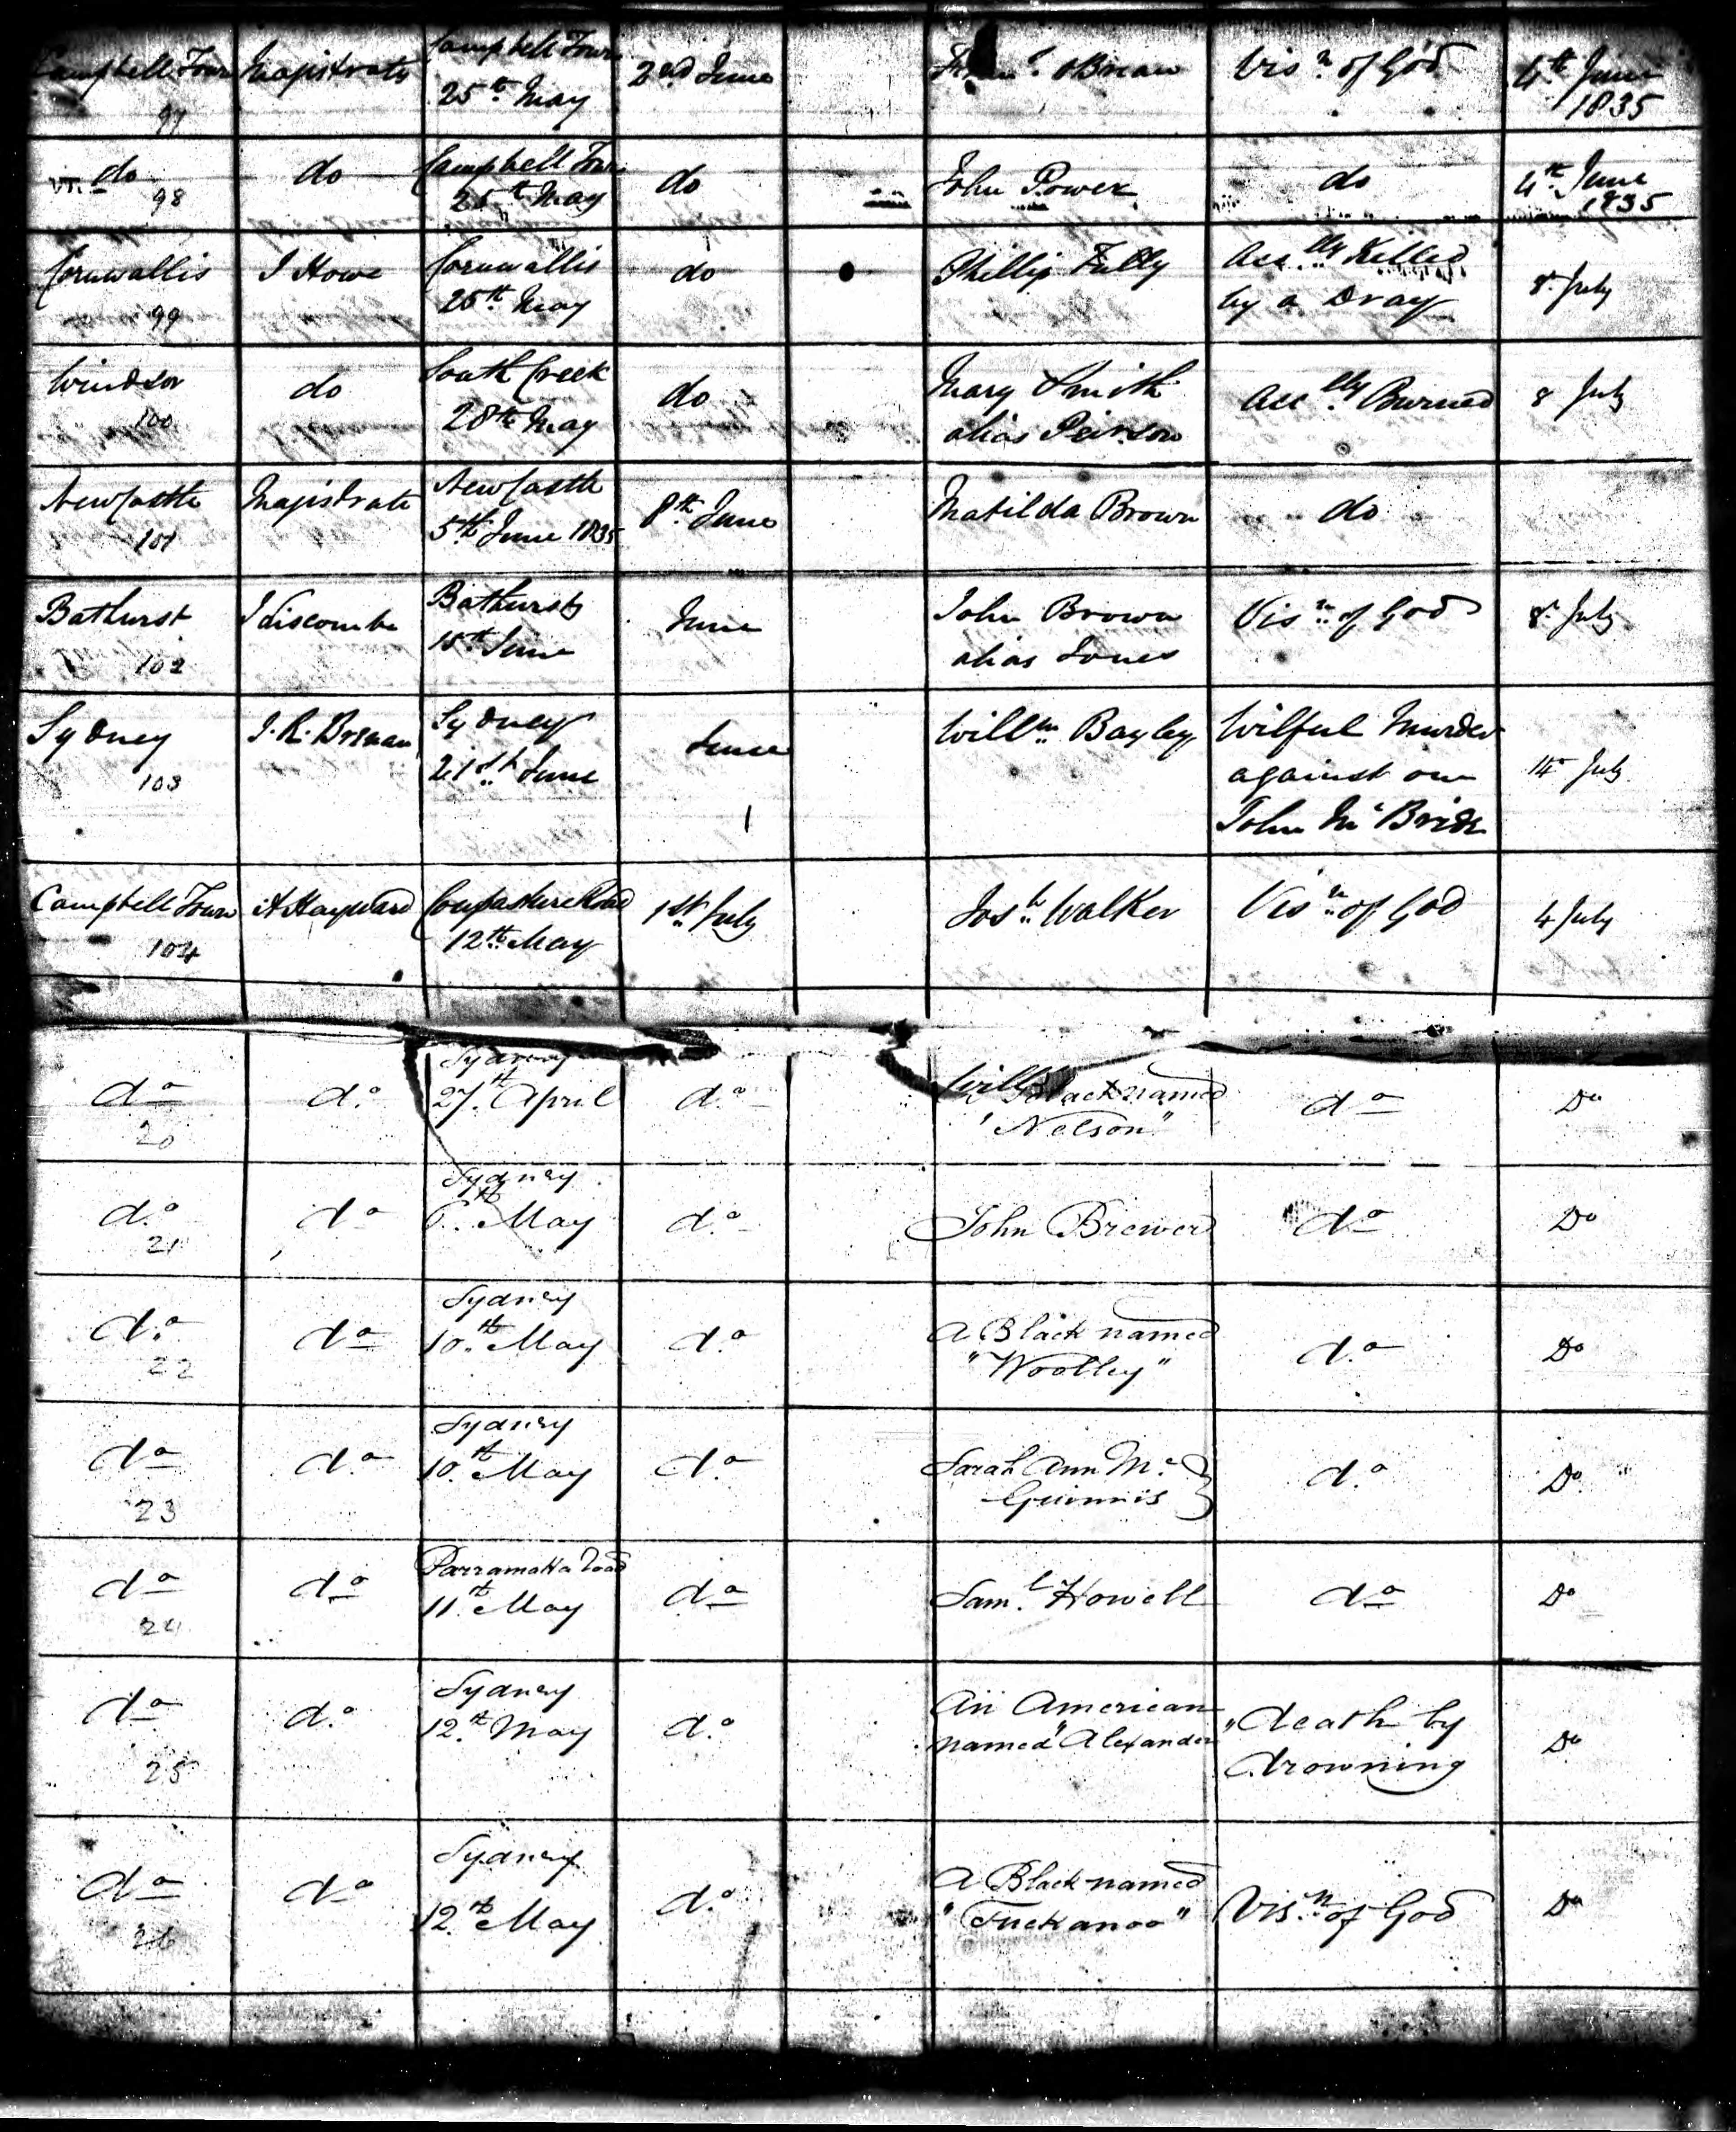 Campbell Town Magistrate Campbell Town 2nd June OBrian Visn of God 4th June
97 25th May 1835
do do Campbell Town do John Power do 4th June
98 25th May 1835
Cornwallis J Howe Cornwallis do Phillip Tully Accdly Killed 8 July
99 25th May by a Dray
Windsor do South Creek do Mary Smith Accdly Burned 8 July
100 28th May alias Peirson
NewCastle Magistrate NewCastle 8th June Matilda Brown do
101 5th June 1835
Bathurst J Liscombe Bathurst June John Brown Visn of God 8 July
102 15th June alias Jones
Sydney J. R. Brenan Sydney June Willm Bayley Wilful Murder 14 July
103 21st June against one
John McBride
Campbell Town 1st July Josh Walker Visn of God 4 July
104 12th May
Sydney
do do 27th April do Black named do Do
20 "Nelson"
Sydney
do do May do John Brewer do Do
21
Sydney
do do 10th May do A Black named do Do
22 "Woolley"
Sydney
do do 10th May do Sarah Ann Mc do Do
23 Guinnis
Parramatta road
do do 11th May do Saml Howell do Do
24
Sydney An American "death by
do do 12th May do named "Alexander drowning Do
25
Sydney
do do 12th May do A Black named Visn of God Do
26 "Tuckanoo"